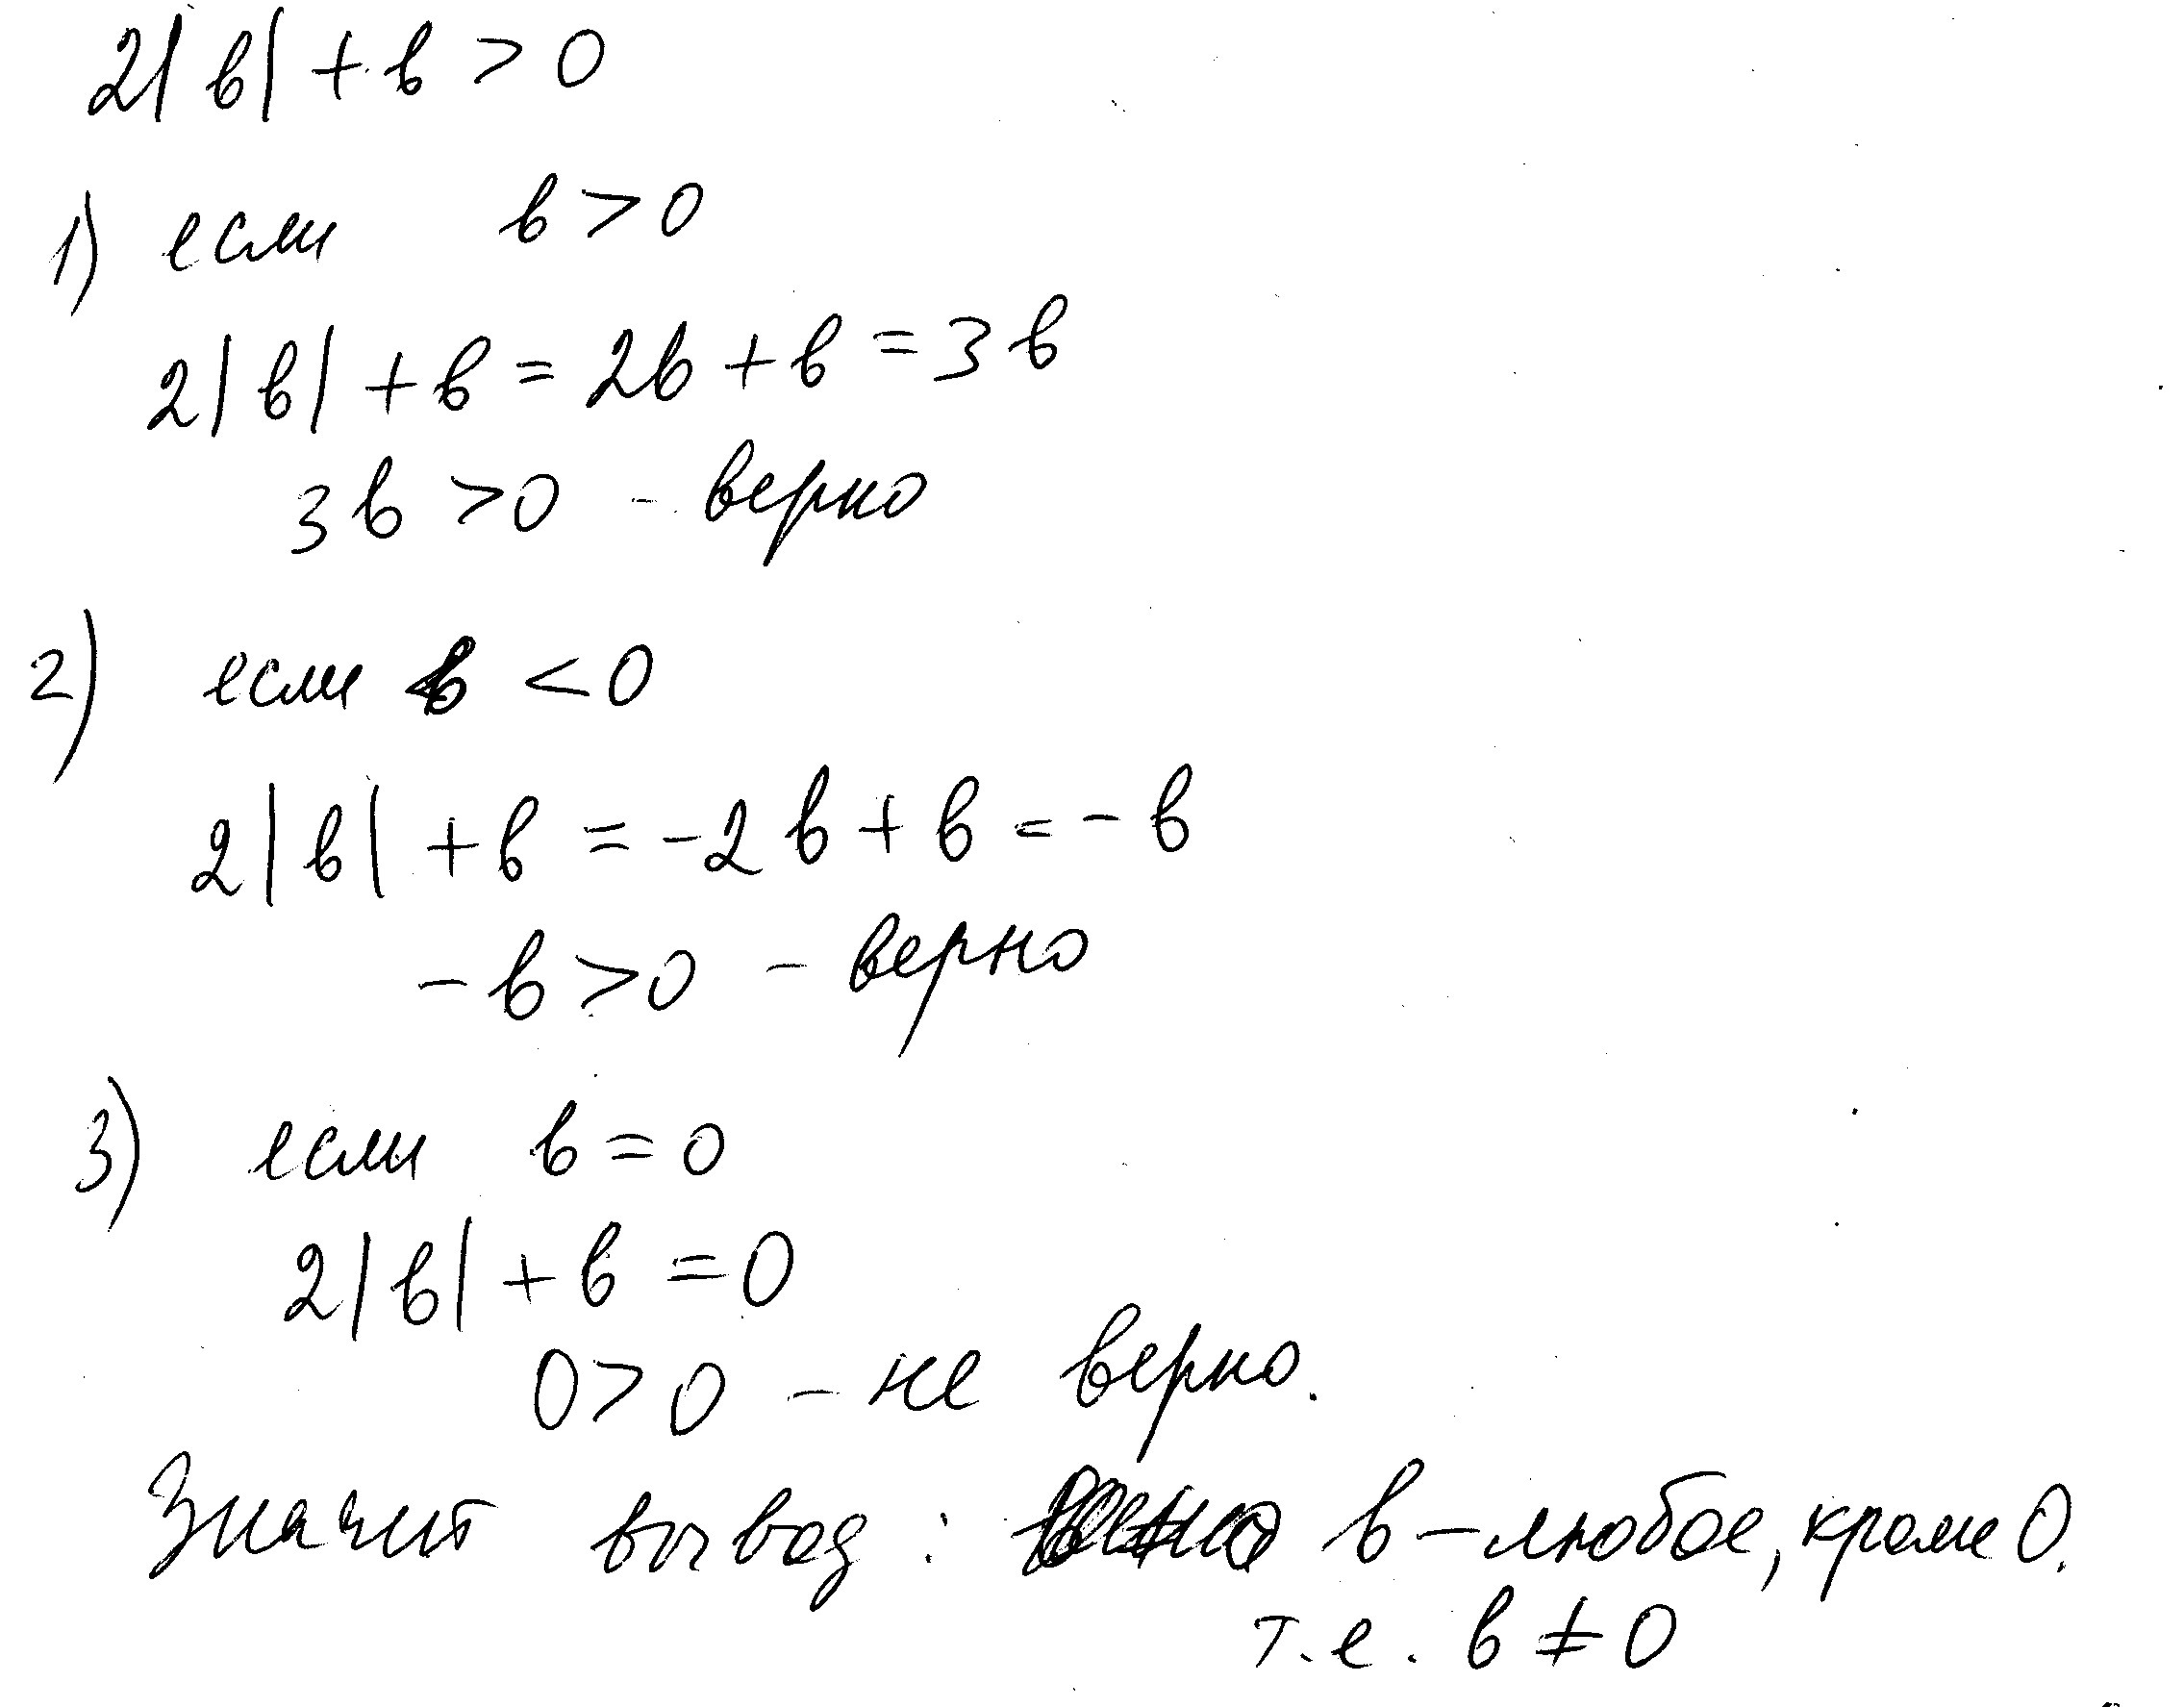 2|в| + в > 0
1) если в > 0
2|в| + в = 2в + в = 3в
3в > 0 - верно
2) если в < 0
2|в| + в = -2в + в = -в
-в > 0 - верно
3) если в = 0
2|в| + в = 0
0 > 0 - не верно.
Значит вывод: в - любое, кроме 0.
т.е. в ≠ 0